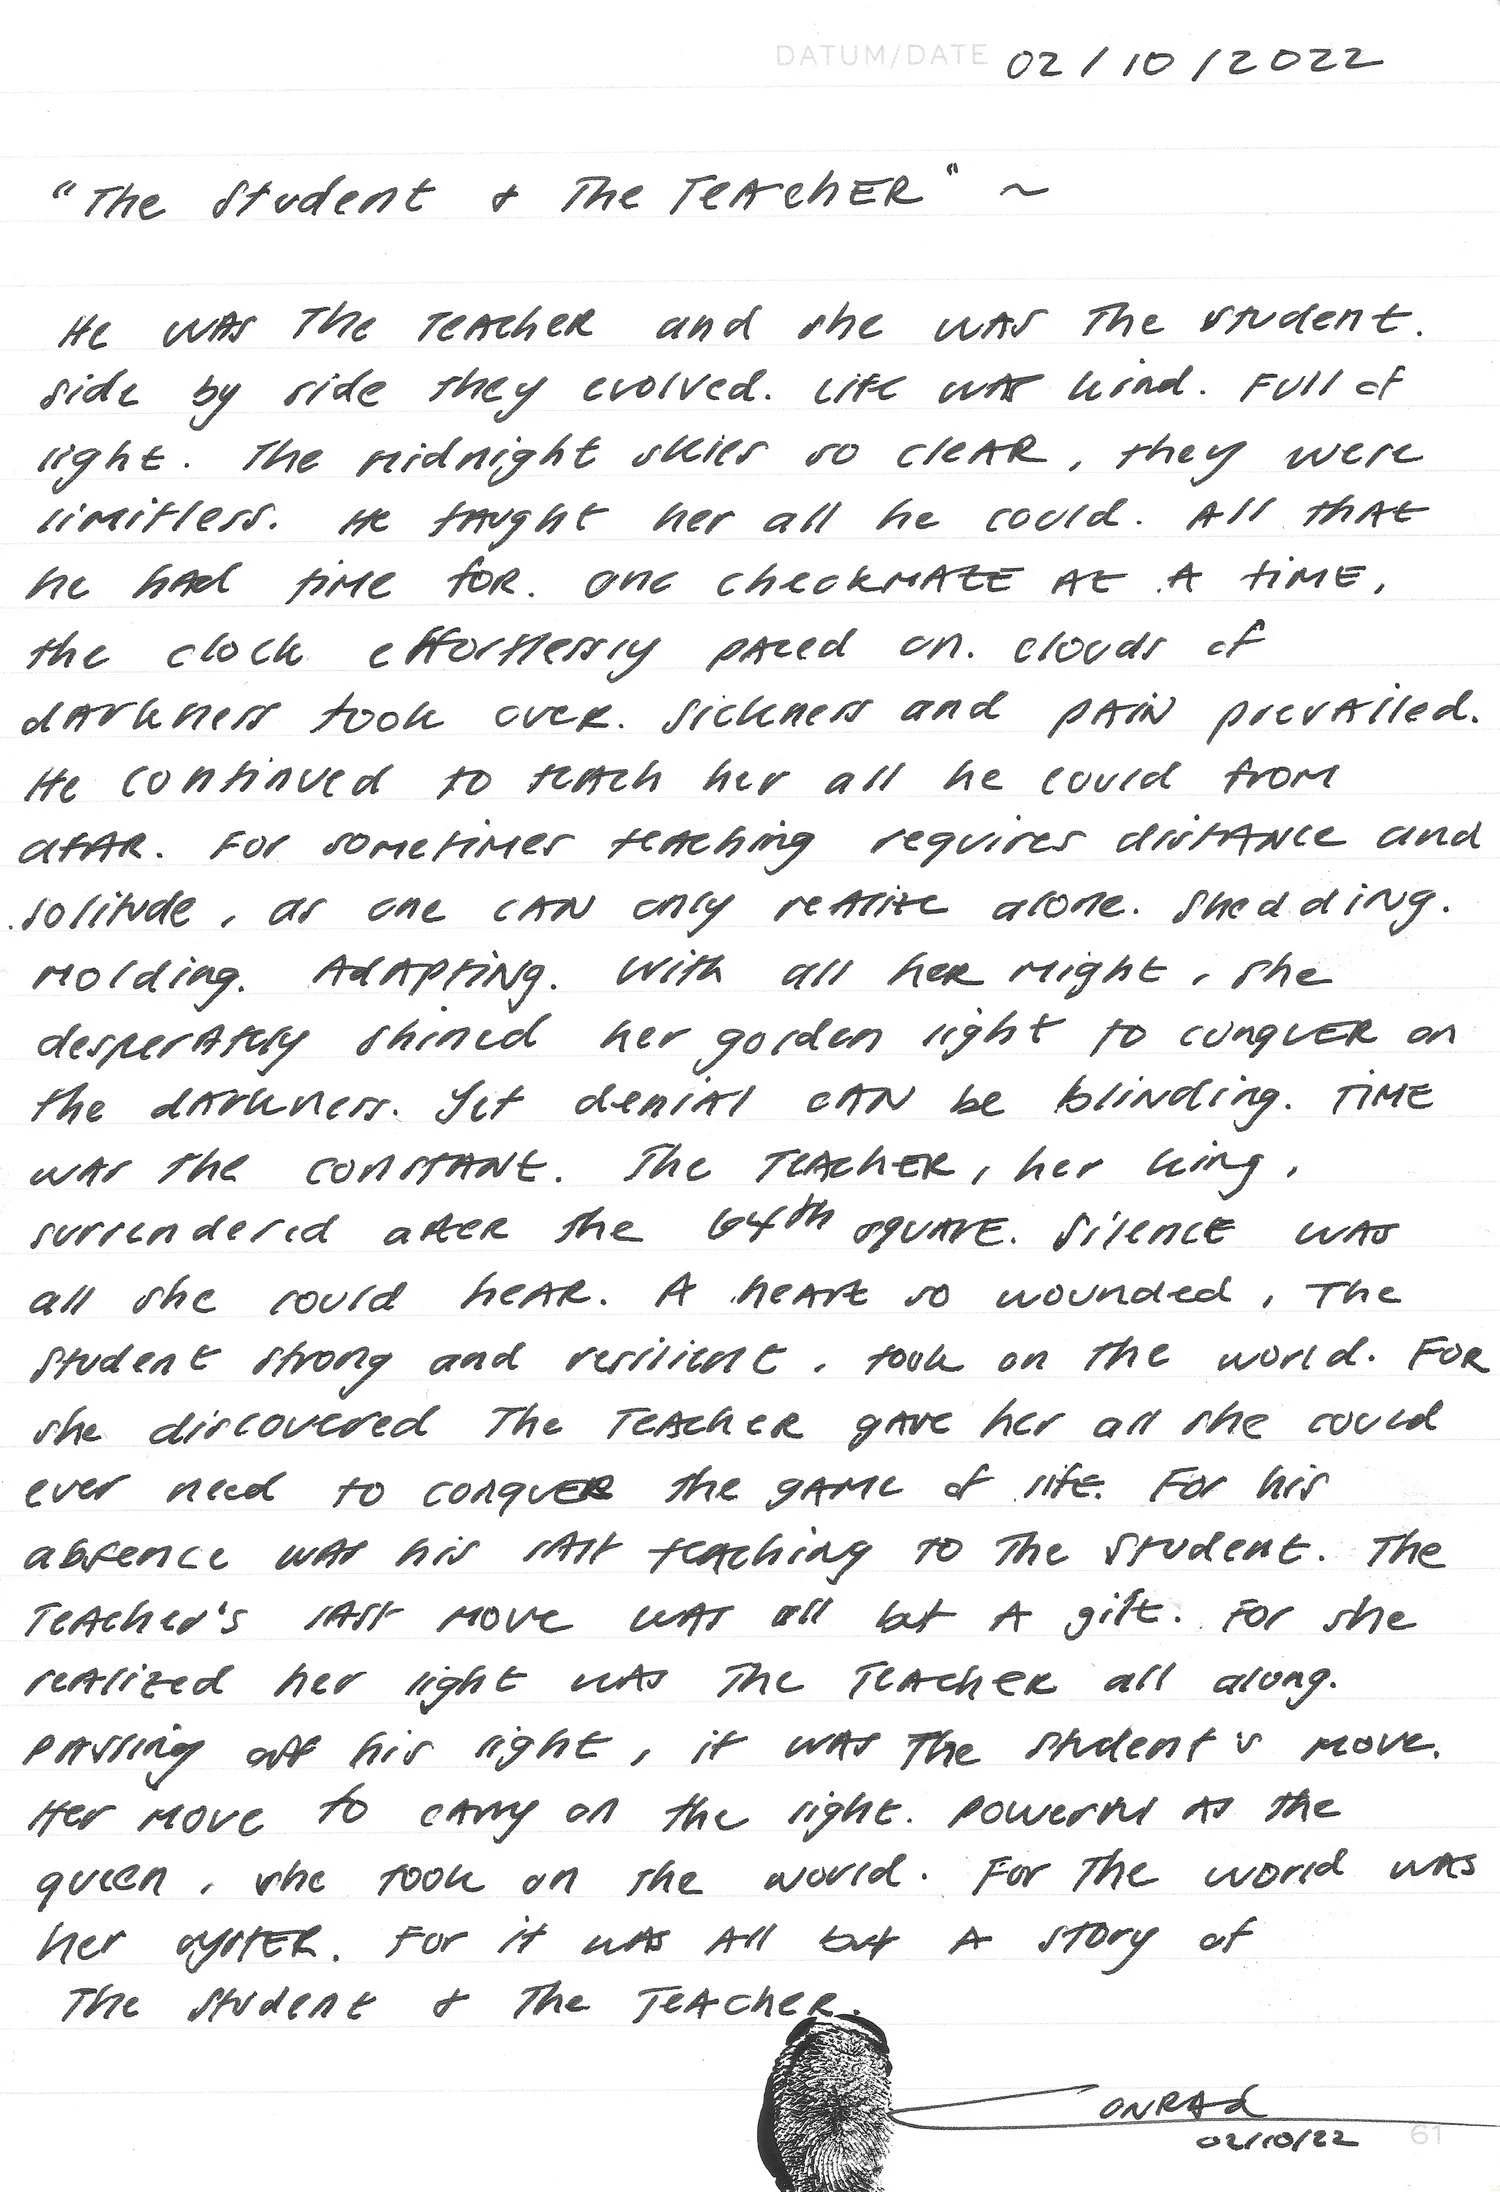 DATUM/DATE 02/10/2022
"The Student & The TeAchER" ~
He wAs The TeAcheR and she wAs The student.
side by side they evolved. Life wAs kind. Full of
light. The Midnight skies so cleAR, they were
limitless. He tAught her all he could. All thAt
he hAd tiMe foR. One checkMAtE At A tiME,
the clock effortlessly pAced on. Clouds of
dArkness took oveR. Sickness and pAiN prevAiled.
He continued to teAch her all he could froM
afAR. For soMetiMes teAching requires distANce and
solitude, as one cAN only reAlize alone. Shedding.
Molding. AdAptiNg. With all heR Might, she
desperAtely shined her golden light to conquER on
the dArkness. Yet deniAl cAN be bliNding. TiME
wAs the constANt. The TeAchER, her king,
surrendered aftER the 64th squARE. SilencE wAs
all she could heAR. A heARt so wounded, The
Student strong and resilient, took on the world. FoR
she discovered The TeAcheR gAve her all she could
ever need to conquER the gAMe of life. For his
absence wAs his lAst teAching to The Student. The
TeAcher's lAst Move wAs all but A gift. For she
reAlized her light wAs The TeAcheR all along.
PAssing off his light, it wAs The Student's Move.
Her Move to cArry on the light. Powerful As the
queen, she took on the world. For The world wAs
her oystER. For it wAs All but A story of
The Student & The TeAcheR.
CONRAd
02/10/22 61